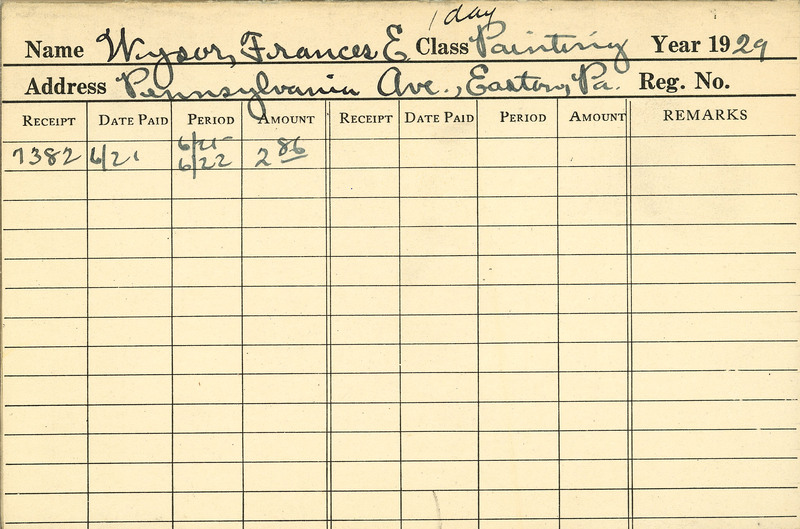 1 day
Name Wysor, Frances E. Class Painting Year 1929
Address Pennsylvania Ave., Easton, Pa. Reg. No.
RECEIPT DATE PAID PERIOD AMOUNT RECEIPT DATE PAID PERIOD AMOUNT REMARKS
6/21
7382 6/21 6/22 2 86